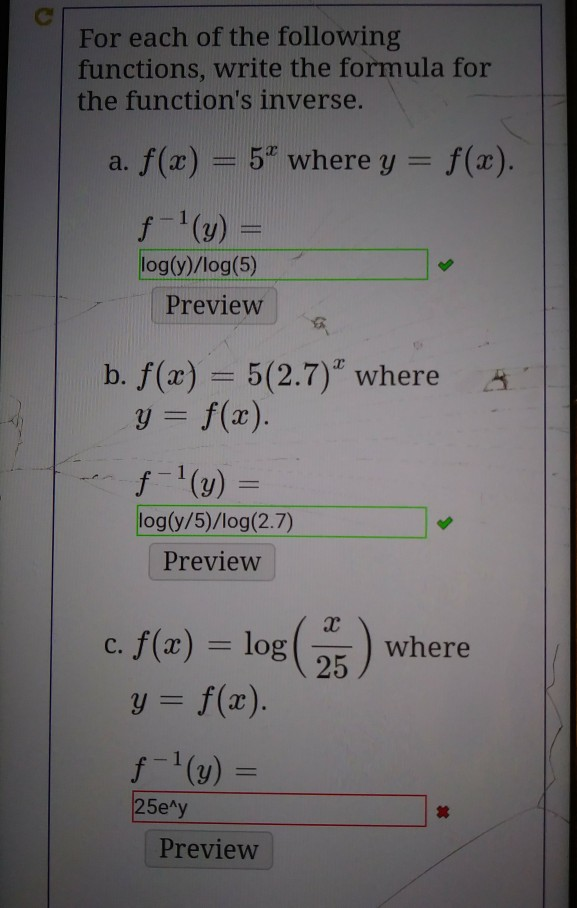 For each of the following
functions, write the formula for
the function's inverse.
a. f(x) = 5^x where y = f(x).
f^{-1}(y) =
log(y)/log(5)
Preview
b. f(x) = 5(2.7)^x where
y = f(x).
f^{-1}(y) =
log(y/5)/log(2.7)
Preview
c. f(x) = log(x/25) where
y = f(x).
f^{-1}(y) =
25e^y
Preview